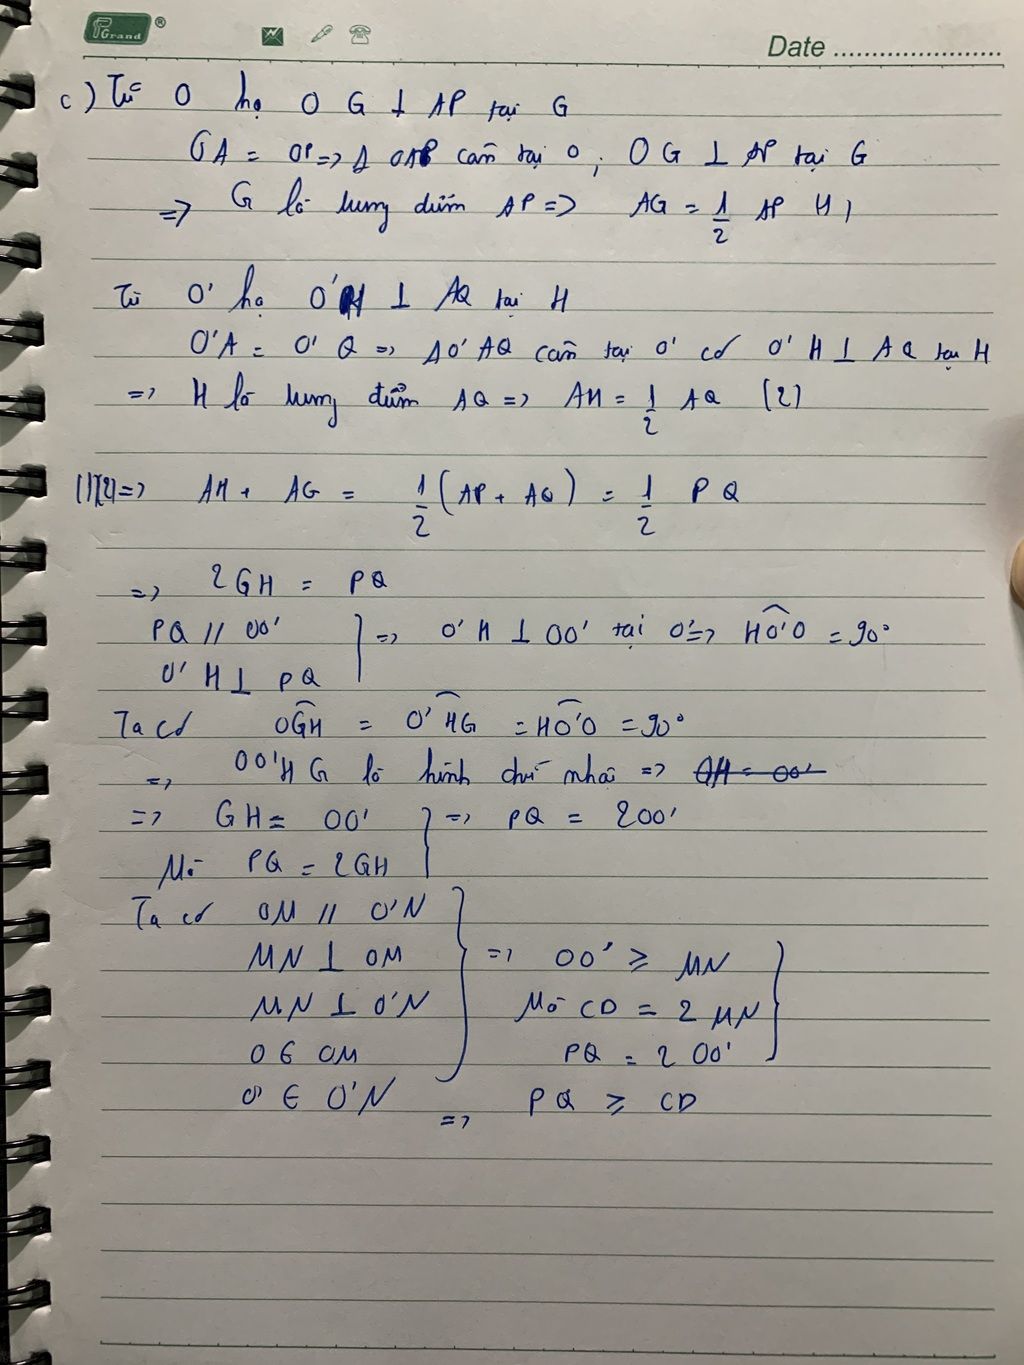 Grand ®
Date
c) Từ O hạ OG ⊥ AP tại G
OA = OP => Δ OAP cân tại O, OG ⊥ AP tại G
=> G là trung điểm AP => AG = 1/2 AP (1)
Từ O' hạ O'H ⊥ AQ tại H
O'A = O'Q => ΔO'AQ cân tại O' có O'H ⊥ AQ tại H
=> H là trung điểm AQ => AH = 1/2 AQ (2)
(1)(2) => AH + AG = 1/2 (AP + AQ) = 1/2 PQ
=> 2GH = PQ
PQ // OO' } => O'H ⊥ OO' tại O' => ∠HO'O = 90°
O'H ⊥ PQ
Ta có ∠OGH = ∠O'HG = ∠HO'O = 90°
=> OO'HG là hình chữ nhật =>
=> GH = OO' } => PQ = 2OO'
Mà PQ = 2GH
Ta có OM // O'N
MN ⊥ OM } => OO' ≥ MN
MN ⊥ O'N Mà CD = 2 MN }
O ∈ OM PQ = 2 OO'
O' ∈ O'N => PQ ≥ CD